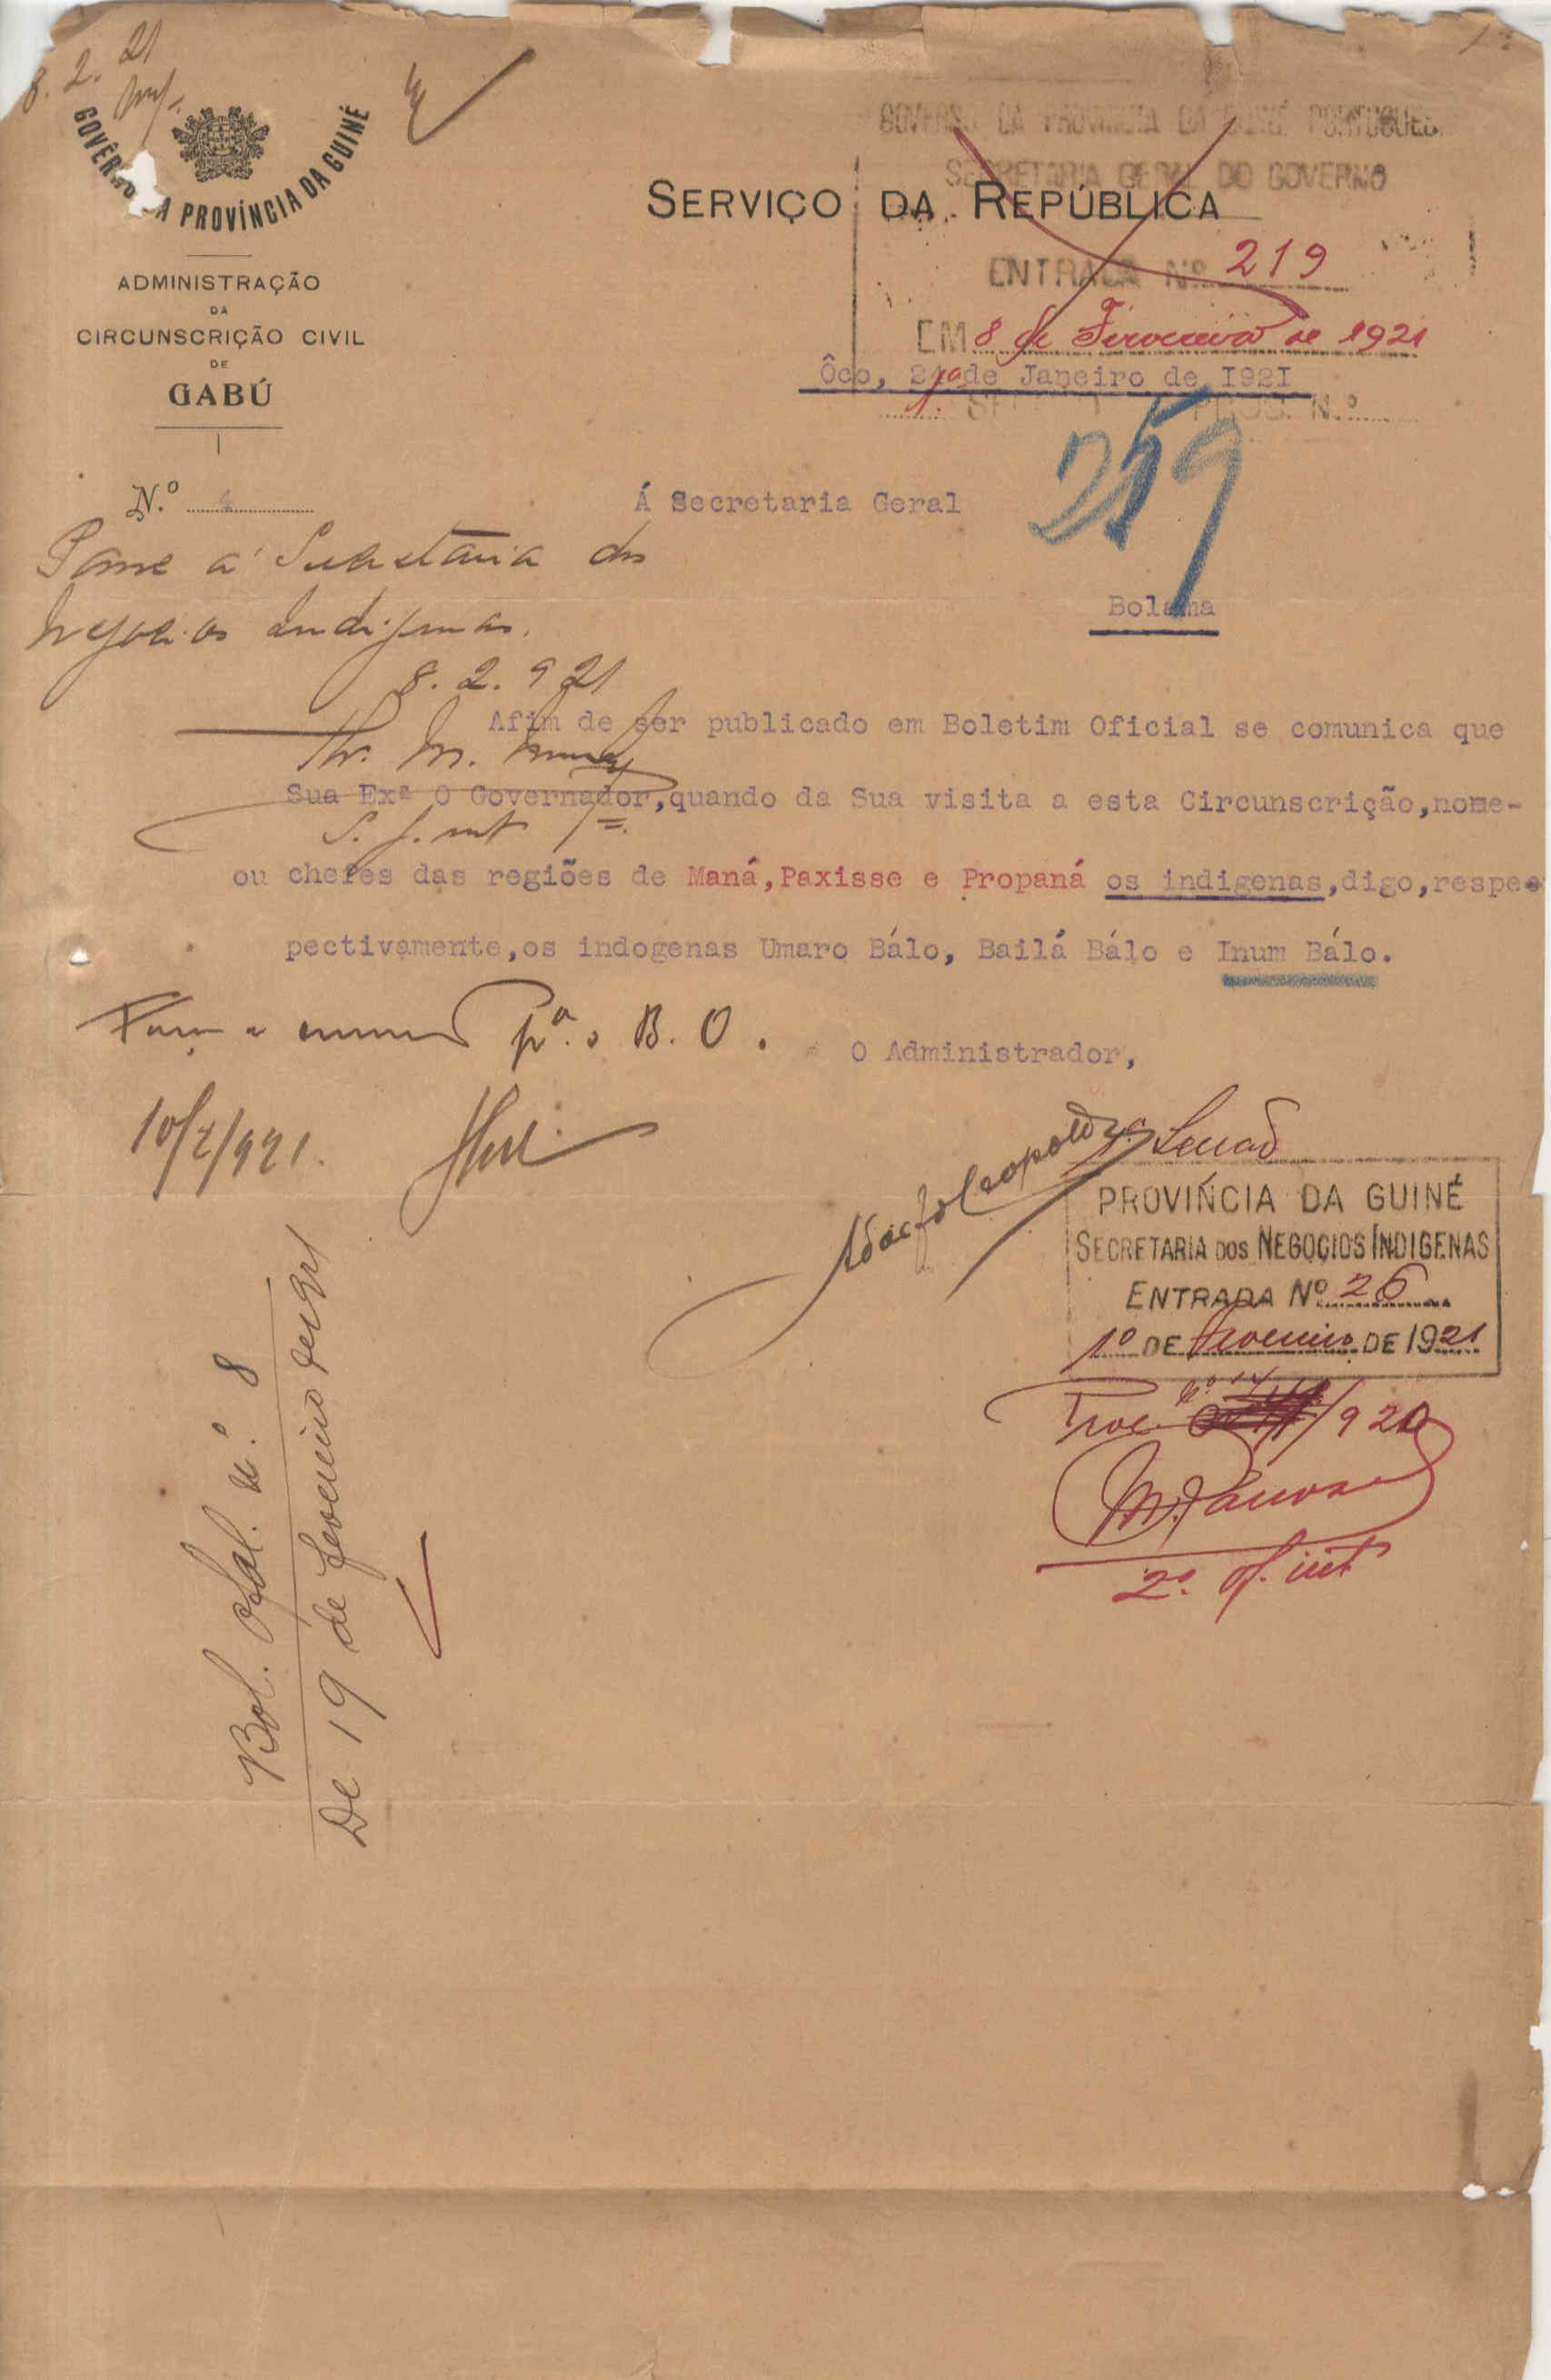 8. 2. 21
GOVÊRNO DA PROVÍNCIA DA GUINÉ
ADMINISTRAÇÃO
DA
CIRCUNSCRIÇÃO CIVIL
DE
GABÚ
GOVERNO DA PROVINCIA DA GUINÉ PORTUGUESA
SECRETARIA GERAL DO GOVERNO
SERVIÇO DA REPÚBLICA
ENTRADA Nº 219
EM 8 de Fevereiro de 1921
Ôco, de Janeiro de I92I
N.º 4
Á Secretaria Geral
259
Bolama
Passe á Secretaria dos
Negocios Indigenas.
8. 2. 921
Afim de ser publicado em Boletim Oficial se comunica que
Sua Exª O Governador,quando da Sua visita a esta Circunscrição,nome-
ou chefes das regiões de Maná,Paxisse e Propaná os indigenas,digo,respec
pectivamente,os indogenas Umaro Bálo, Bailá Bálo e Inum Bálo.
pª. o B. O.
O Administrador,
10/2/921.
PROVÍNCIA DA GUINÉ
SECRETARIA DOS NEGOCIOS INDIGENAS
ENTRADA Nº 26
DE fevereiro DE 1921
Proc. nº /920
2º. of. int
Bol. Ofal. n.º 8
De 19 de fevereiro de 1921